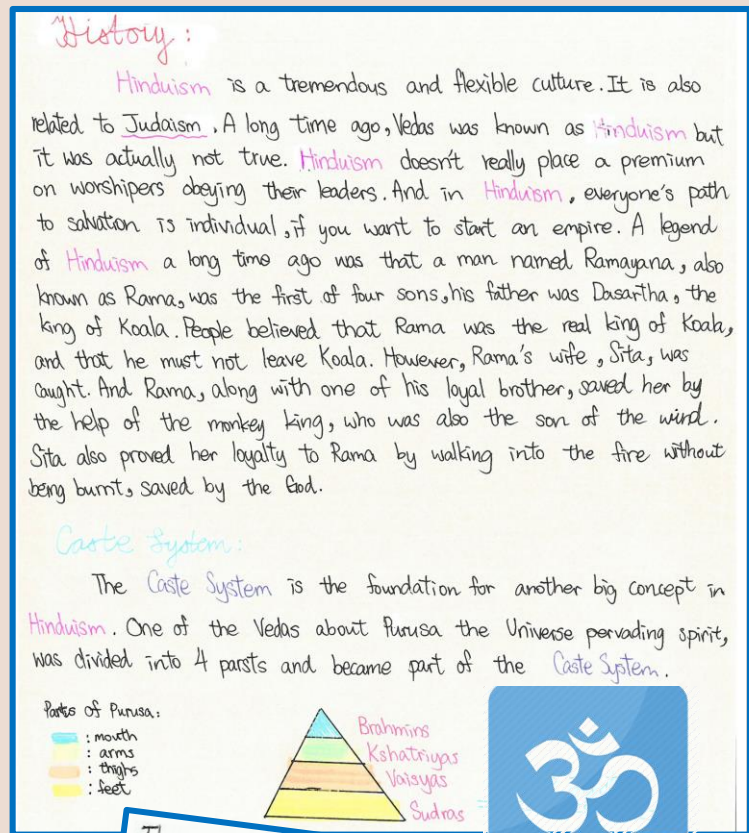 History:
Hinduism is a tremendous and flexible culture. It is also
related to Judaism. A long time ago, Vedas was known as Hinduism but
it was actually not true. Hinduism doesn't really place a premium
on worshipers obeying their leaders. And in Hinduism, everyone's path
to salvation is individual, if you want to start an empire. A legend
of Hinduism a long time ago was that a man named Ramayana, also
known as Rama, was the first of four sons, his father was Dasartha, the
king of Koala. People believed that Rama was the real king of Koala,
and that he must not leave Koala. However, Rama's wife, Sita, was
caught. And Rama, along with one of his loyal brother, saved her by
the help of the monkey king, who was also the son of the wind.
Sita also proved her loyalty to Rama by walking into the fire without
being burnt, saved by the God.
Caste System:
The Caste System is the foundation for another big concept in
Hinduism. One of the Vedas about Purusa the Universe pervading spirit,
was divided into 4 parsts and became part of the Caste System.
Parts of Purusa:
: mouth
: arms
: thighs
: feet
Brahmins
Kshatriyas
Vaisyas
Sudras
ॐ